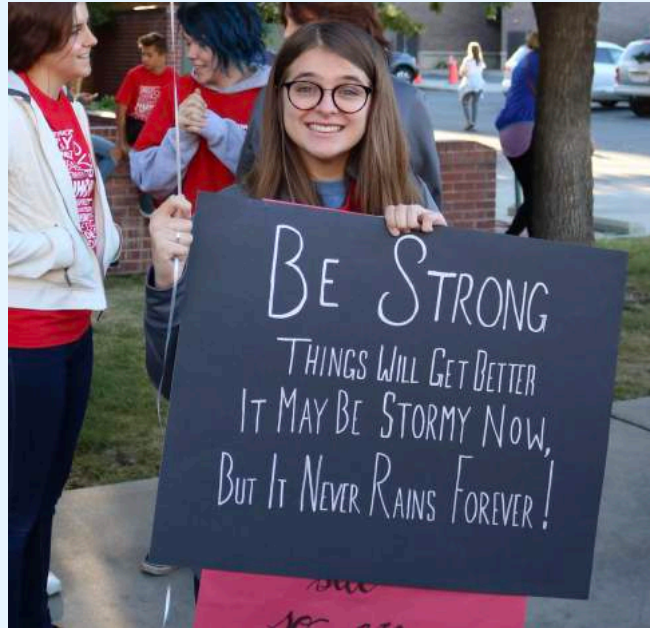 Be Strong
Things Will Get Better
It May Be Stormy Now,
But It Never Rains Forever!